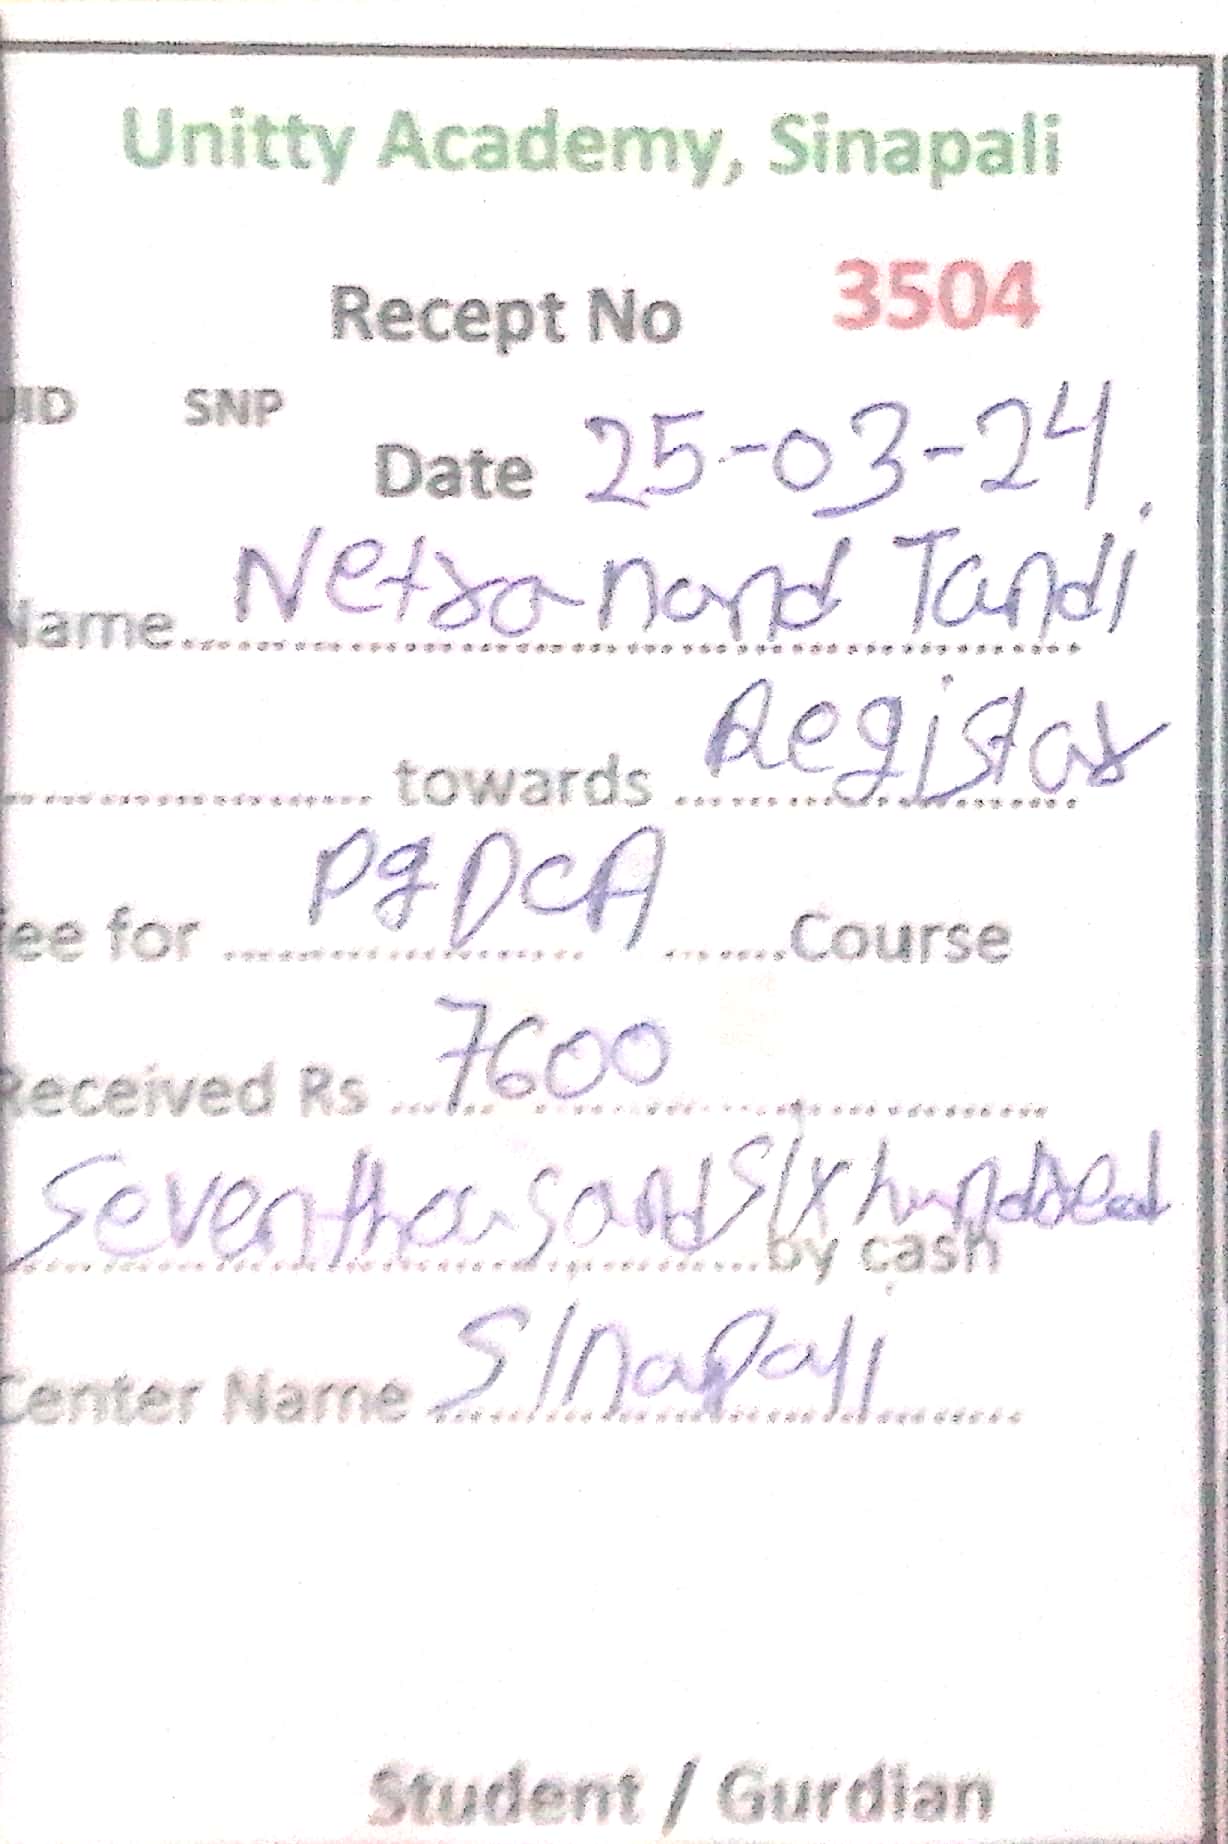 Unitty Academy, Sinapali
Recept No 3504
UID SNP
Date 25-03-24
Name Netranand Tandi
towards Registar
fee for PgDCA Course
Received Rs 7600
Seven thousand Six hundred by cash
Center Name Sinapali
Student / Gurdian